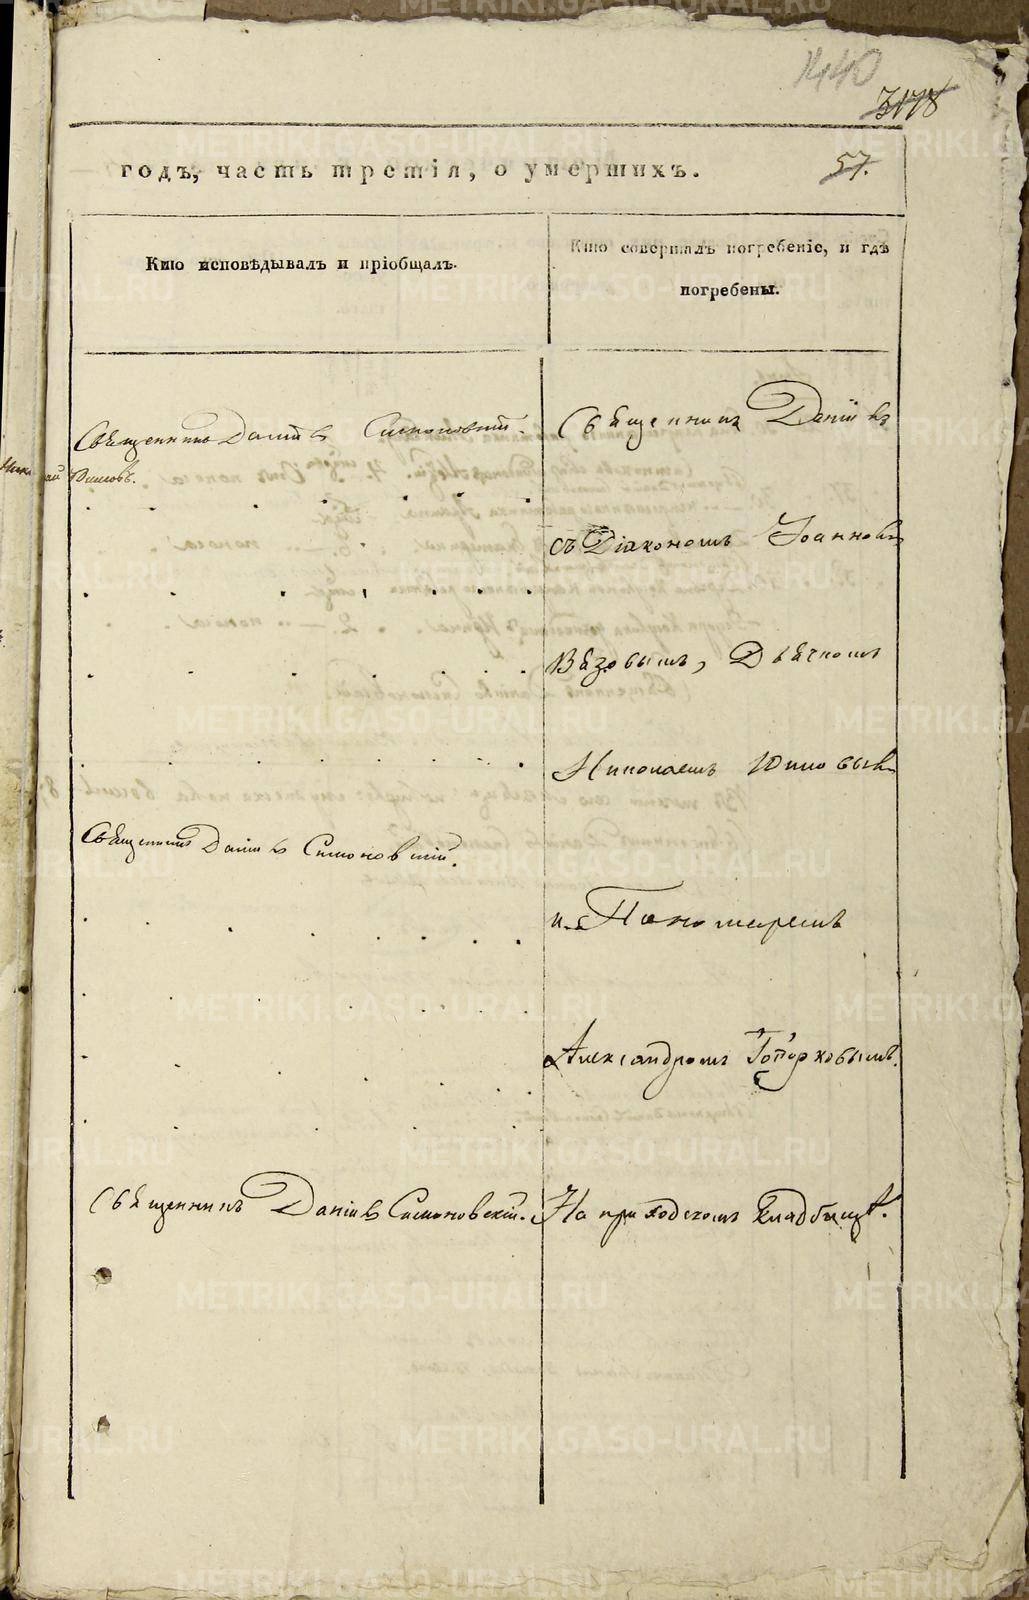 1440
3178
годъ, часть третія, о умершихъ.
57.
Кто исповѣдывалъ и пріобщалъ.
Кто совершалъ погребеніе, и гдѣ
погребены.
Священникъ Даніилъ
Священникъ Даніилъ Симоновскій.
съ Діакономъ Іоанномъ
Вязовымъ, Дьячкомъ
Николаемъ Юшковымъ
Священникъ Даніилъ Симоновскій.
и Пономаремъ
Александромъ Топорковымъ.
Священникъ Даніилъ Симоновскій.
На приходскомъ кладбищѣ.
METRIKI.GASO-URAL.RU